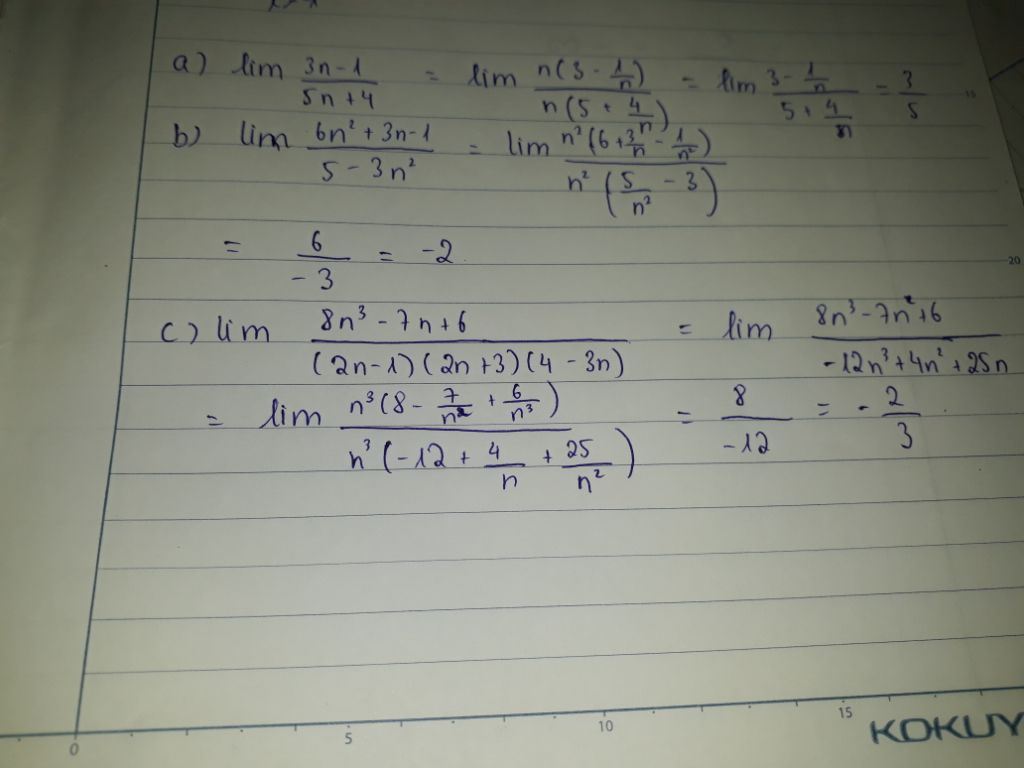 a) lim (3n-1)/(5n+4) = lim n(3 - 1/n)/n(5 + 4/n) = lim (3 - 1/n)/(5 + 4/n) = 3/5
15
b) lim (6n² + 3n-1)/(5 - 3n²) = lim n²(6 + 3/n - 1/n²)/n²(5/n² - 3)
= 6/-3 = -2
20
c) lim (8n³ - 7n + 6)/((2n-1)(2n+3)(4 - 3n)) = lim (8n³ - 7n² + 6)/(-12n³ + 4n² + 25n)
= lim n³(8 - 7/n² + 6/n³)/n³(-12 + 4/n + 25/n²) = 8/-12 = -2/3
0 5 10 15 KOKUY